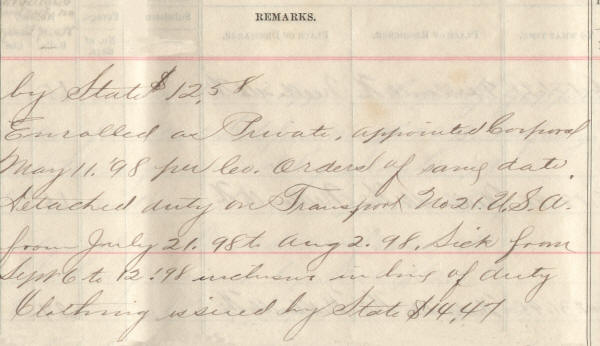 REMARKS.
by State $12,58
Enrolled as Private, appointed Corporal
May 11. '98 per Co. Orders of same date.
Detached duty on Transport No 21. U.S.A.
from July 21. 98 to Aug 2. 98. Sick from
Sept 6 to 12. '98 inclusive in line of duty
Clothing issued by State $14,47